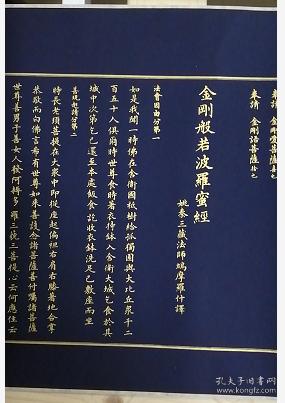 奉請 金剛愛菩薩
奉請 金剛語菩薩
金剛般若波羅蜜經
姚秦三藏法師鳩摩羅什譯
法會因由分第一
如是我聞一時佛在舍衛國祇樹給孤獨園與大比丘眾千二
百五十人俱爾時世尊食時著衣持鉢入舍衛大城乞食於其
城中次第乞已還至本處飯食訖收衣鉢洗足已敷座而坐
善現起請分第二
時長老須菩提在大眾中即從座起偏袒右肩右膝著地合掌
恭敬而白佛言希有世尊如來善護念諸菩薩善付囑諸菩薩
世尊善男子善女人發阿耨多羅三藐三菩提心云何應住云
孔夫子旧书网